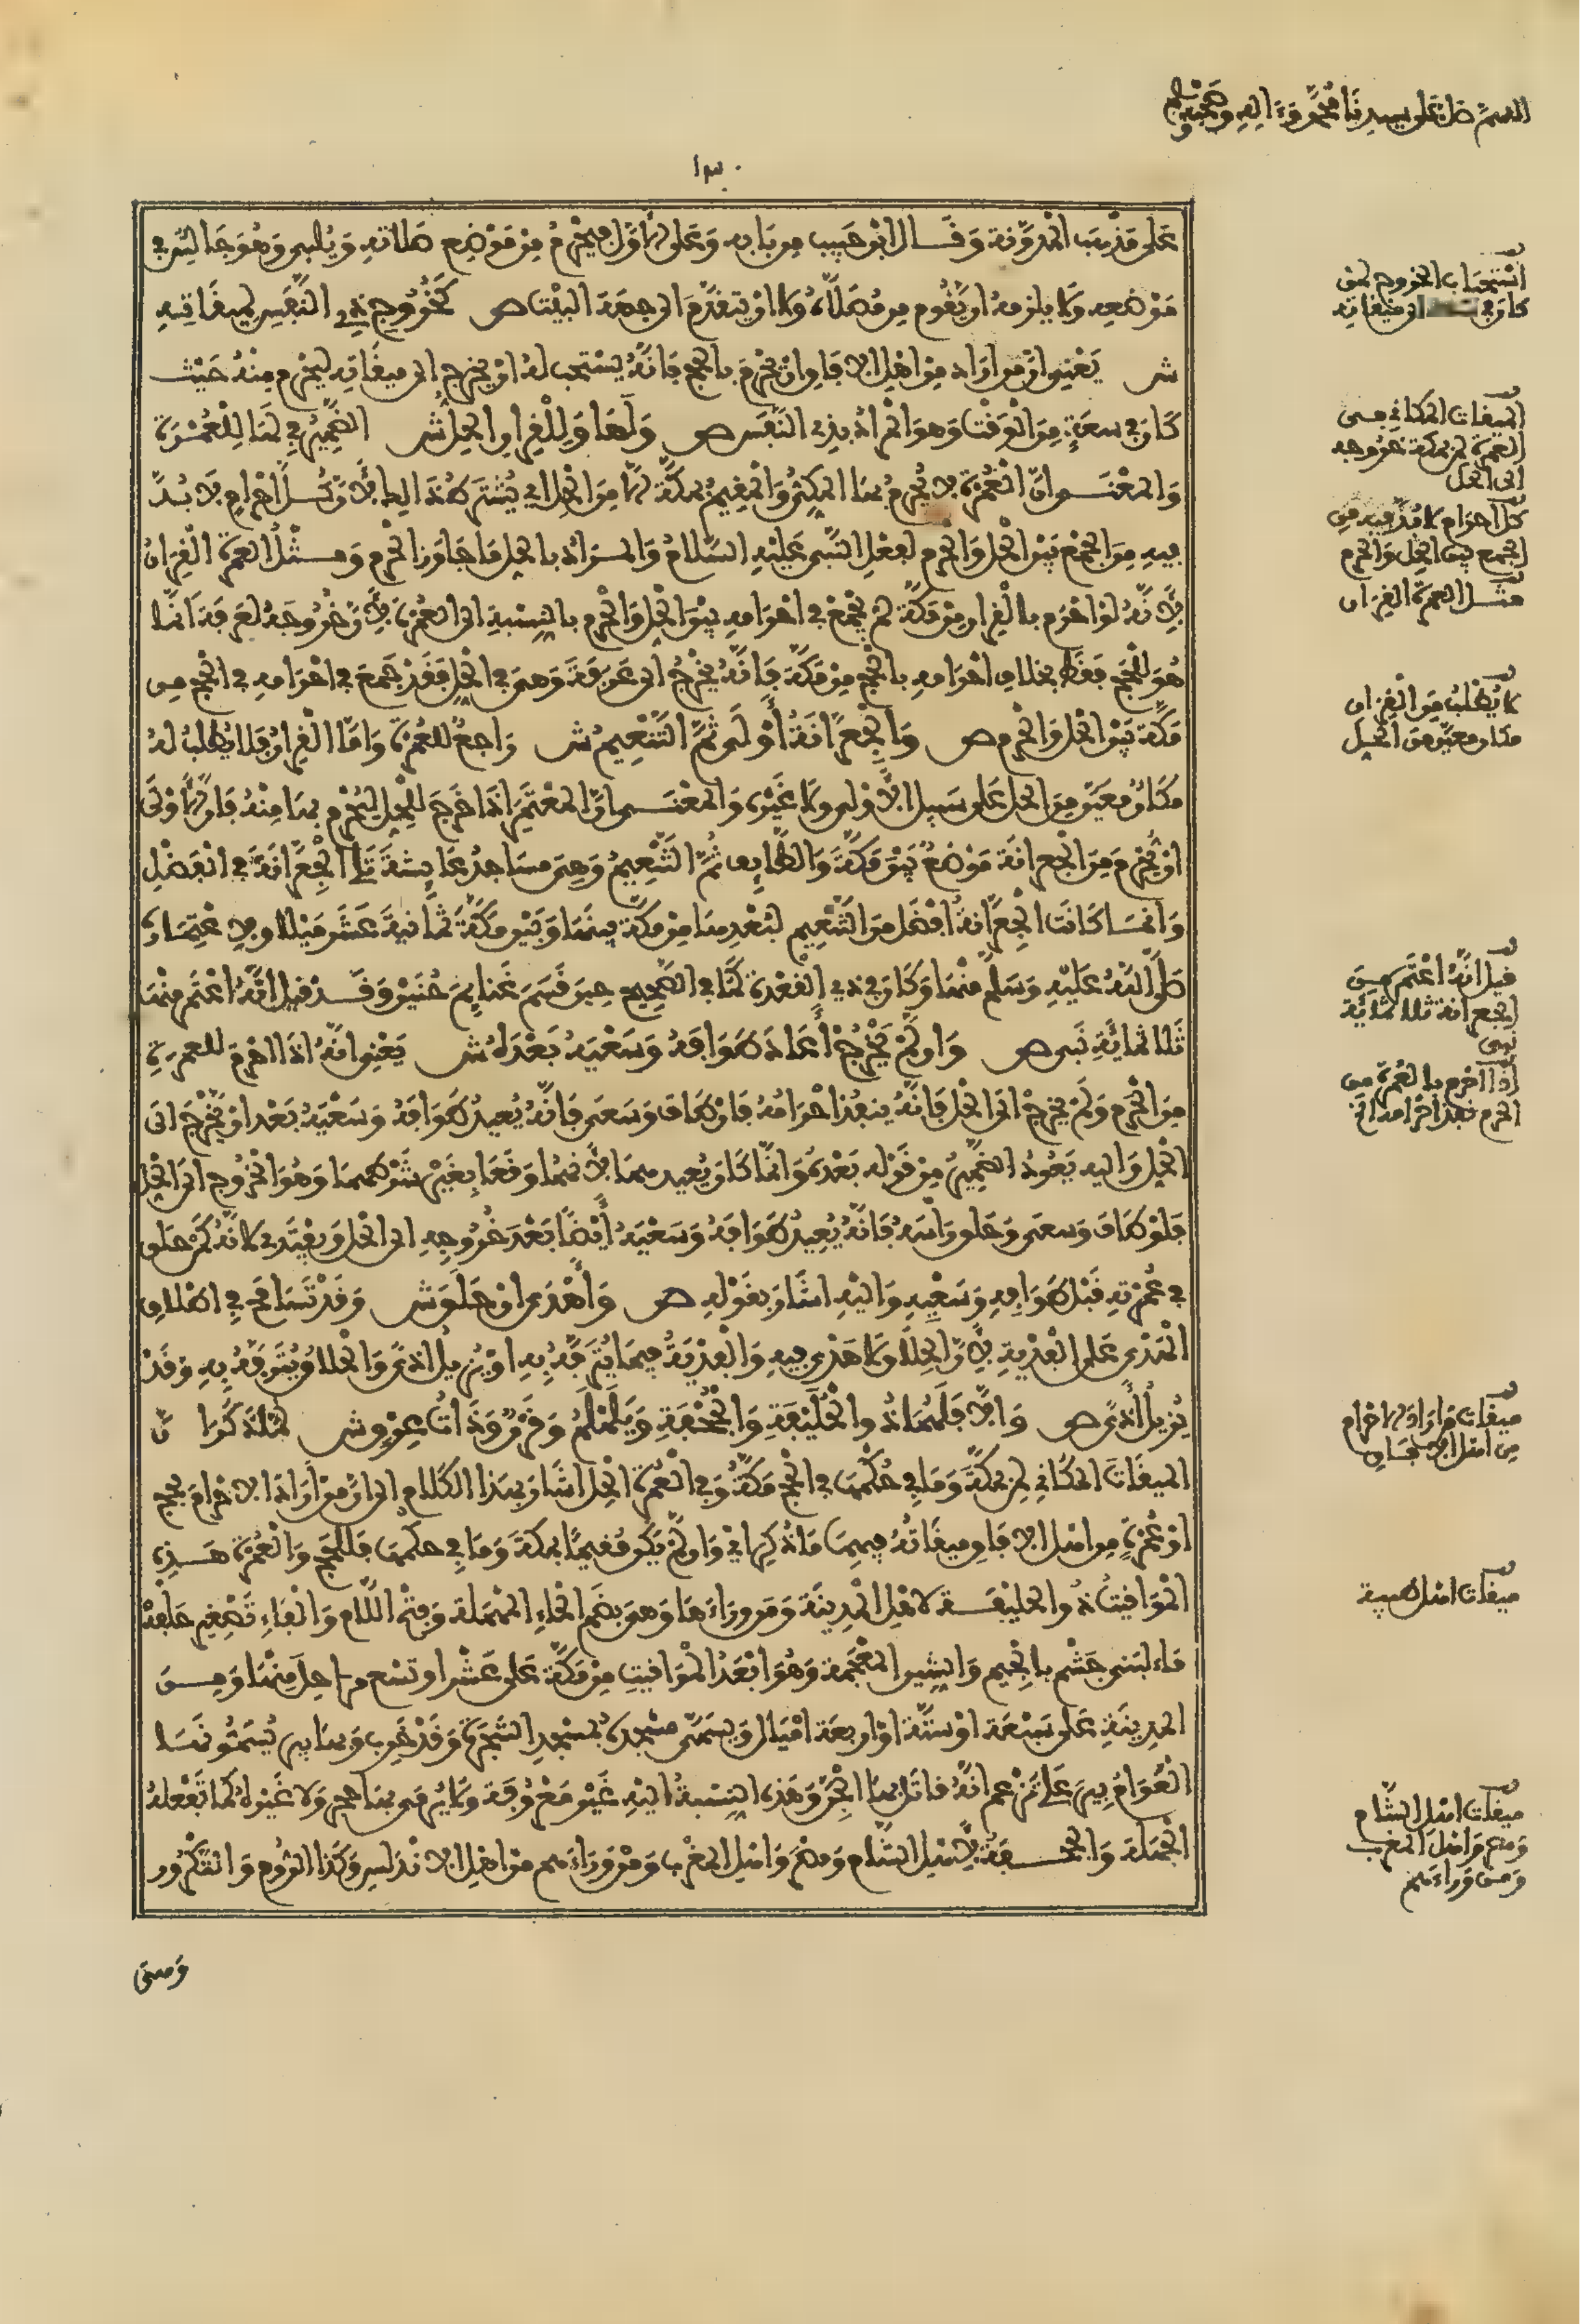 اللهم صل على سيدنا محمد وءاله وصحبه وسلم
١٣٠
على مذهب المدونة وقال ابن حبيب من بابه وعلى الأول فيحرم من موضع صلاته ويلبي وهو جالس في
موضعه ولا يلزمه أن يقوم من مصلاه ولا أن يتقدم الى جهة البيت ص كخروج ذي النفس لميقاته
ش يعني أن من أراد من أهل الآفاق أن يحرم بالحج فانه يستحب له أن يخرج إلى ميقاته ليحرم منه حيث
كان في سعة من الوقت وهو المراد بذي النفس ص ولها وللقران الحل ش الضمير في لها للعمرة
والمعنى أن العمرة لا يحرم بها المكي والمقيم بمكة إلا من الحل أي يشترط ذلك لأن كل إحرام لا بد
فيه من الجمع بين الحل والحرم لفعل النبي عليه السلام والمراد بالحل ما جاوز الحرم ومثل العمرة القران
لأنه لو احرم بالقران من مكة لم يجمع في احرامه بين الحل والحرم بالنسبة الى العمرة لأن خروجه لعرفة انما
هو للحج فقط بخلاف احرامه بالحج من مكة فانه يخرج الى عرفة وهي في الحل فقد جمع في احرامه في الحج من
مكة بين الحل والحرم ص والجعرانة أولى ثم التنعيم ش راجع للعمرة واما القران فلا يطلب له
مكان معين من الحل على سبيل الاولى ولا غيره والمعنى ان المعتمر اذا خرج للحل ليحرم بها منه فالأولى
ان يحرم من الجعرانة موضع بين مكة والطايف ثم التنعيم وهي مساجد عايشة تلي الجعرانة في الفضل
وانما كانت الجعرانة افضل من التنعيم لبعدها من مكة بينها وبين مكة ثمانية عشر ميلا ولاعتماره
صلى الله عليه وسلم منها وكان في ذي القعدة كما في الصحيح حين قسم غنايم حنين وقد قيل انه اعتمر منها
ثلاثماية نبي ص وان لم يخرج أعاد طوافه وسعيه بعده ش يعني انه اذا احرم للعمرة
من الحرم ولم يخرج الى الحل فانه ينعقد احرامه فان طاف وسعى فانه يعيد طوافه وسعيه بعد ان يخرج الى
الحل واليه يعود الضمير من قوله بعده وانما كان يعيدهما لأنهما وقعا بغير شرطهما وهو الخروج الى الحل
فلو طاف وسعى وحلق رأسه فانه يعيد طوافه وسعيه أيضا بعد خروجه الى الحل ويفتدي لانه كمن حلق
في عمرته قبل طوافه وسعيه واليه اشار بقوله ص وأهدى ان حلق ش وقد تسامح في اطلاق
الهدي على الفدية لأن الحلاق لا هدي فيه والفدية فيما يترفه به او يزيل اذى والحلاق يترفه به وقد
يزيل أذى ص والا فلهما ذو الحليفة والجحفة ويلملم وقرن وذات عرق ش لما ذكر ان
الميقات المكاني لمن بمكة وما في حكمها في الحج مكة وفي العمرة الحل اشار بهذا الكلام الى ان من اراد الاحرام بحج
او عمرة من اهل الافاق ميقاته فيهما ما ذكر اي وان لم يكن مقيما بمكة وما في حكمها فللحج والعمرة هذه
المواقيت ذو الحليفة لاهل المدينة ومن وراءها وهو بضم الحاء المهملة وفتح اللام والفاء تصغير حلفة
ماء لبني جشم بالجيم والشين المعجمة وهو ابعد المواقيت من مكة على عشر او تسع مراحل منها ومن
المدينة على سبعة او ستة او اربعة اميال ويسمى مسجده بمسجد الشجرة وقد خرب وبها بير يسمونها
العوام بير علي تزعم انه قاتل بها الجن وهذه النسبة اليه غير معروفة ولا يرمى بها حجر ولا غيره كما تفعله
الجهلة والجحفة لأهل الشام ومصر واهل المغرب ومن وراءهم من اهل الاندلس وكذا الروم والتكرور
ومن
استحباب الخروج لمن
كان في الى ميقاته
الميقات المكاني في
العمرة لمن بمكة خروجه
الى الحل
كل احرام لا بد فيه من
الجمع بين الحل والحرم
مثل العمرة القران
لا يطلب من القران
مكان معين من الحل
قيل انه اعتمر من
الجعرانة ثلاثماية
نبي
اذا احرم بالعمرة من
الحرم فبعد احرامه الخ
ميقات من اراد الاحرام
من اهل الافاق
ميقات اهل طيبة
ميقات اهل الشام
ومصر واهل المغرب
ومن وراءهم